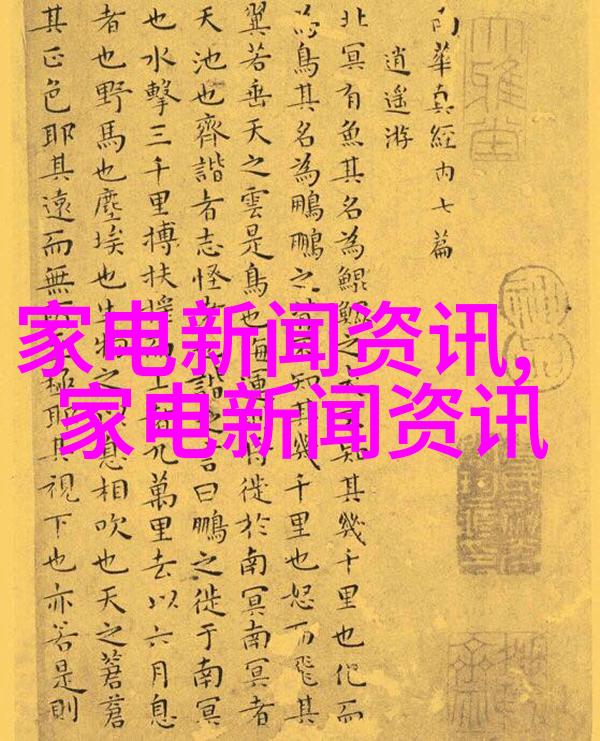 南華真經内七篇
逍遥游
北冥有魚其名為鯤鯤之大不知其幾千里也化而
為鳥其名為鵬鵬之背不知其幾千里也怒而飛其
翼若垂天之雲是鳥也海運則將徙於南冥南冥者
天池也齊諧者志怪者也諧之言曰鵬之徙于南冥
也水擊三千里搏扶搖而上者九萬里去以六月息
者也野馬也塵埃也生物之以息相吹也天之蒼蒼
其正色耶其遠而無所至極耶其視下也亦若是則
大雅堂
神品
家电新闻资讯,
家电新闻资讯